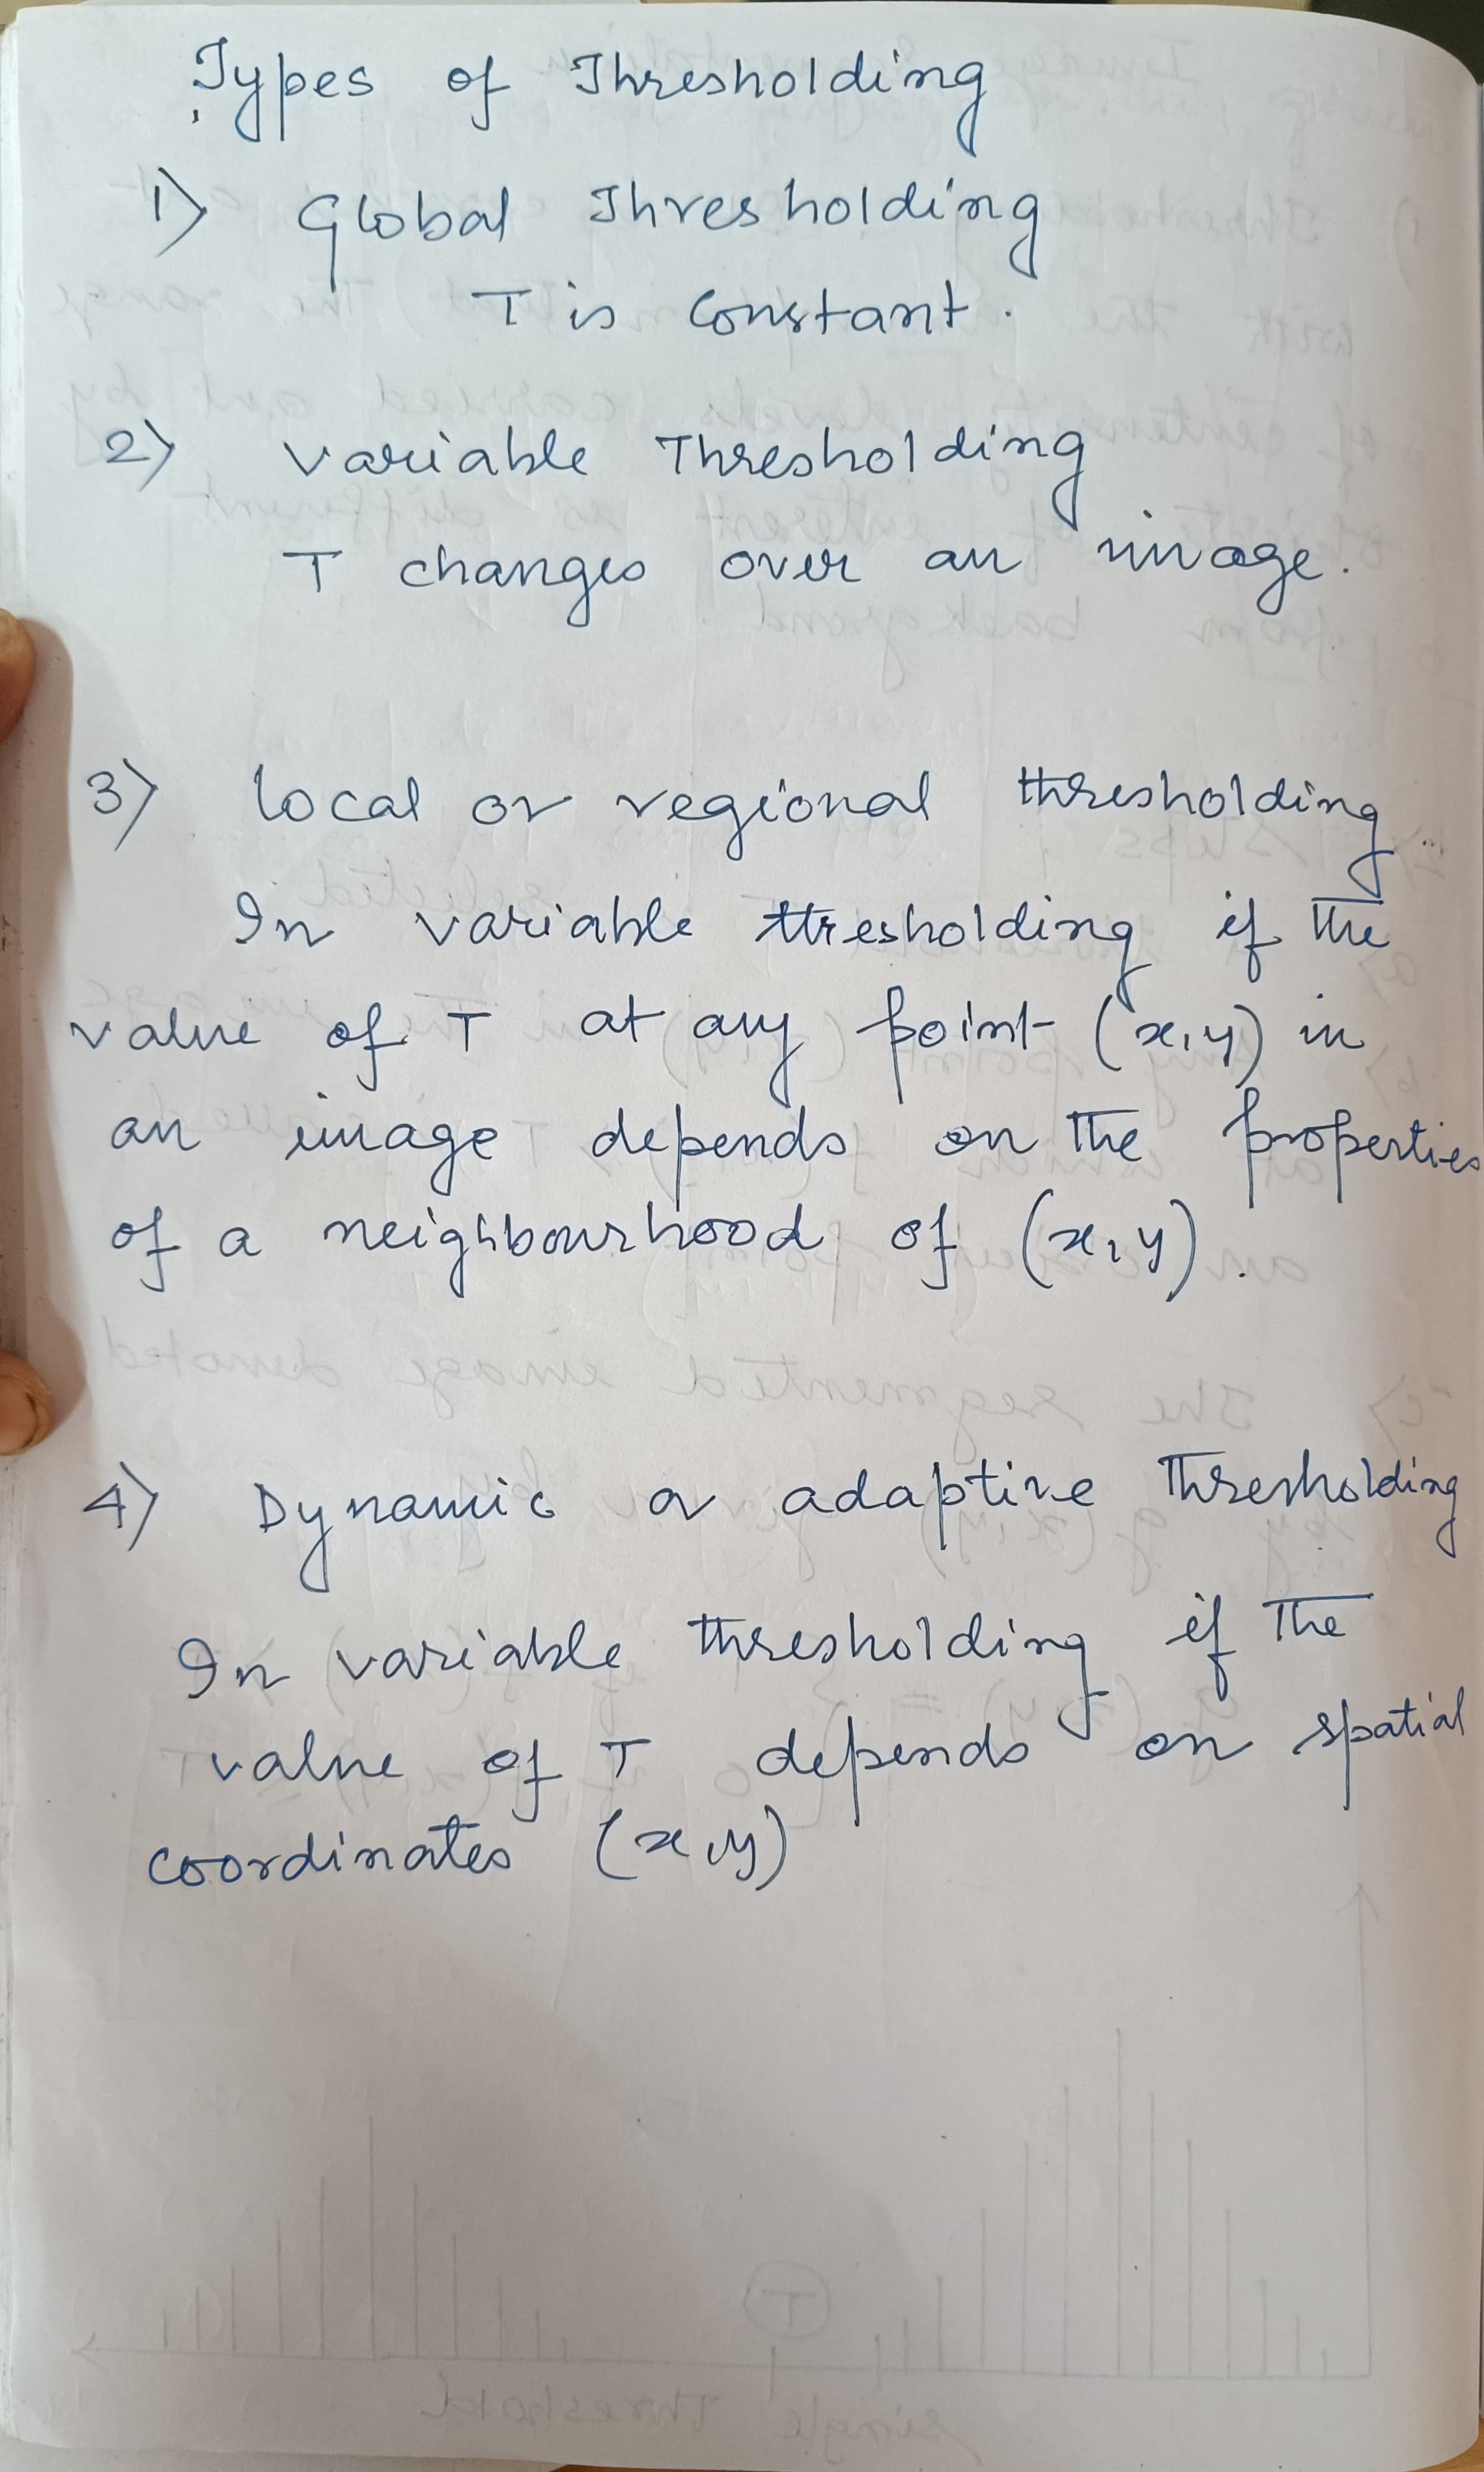 Types of Thresholding
1) Global Thresholding
T is Constant.
2) Variable Thresholding
T changes over an image.
3) local or regional thresholding
In variable thresholding if the
value of T at any point (x,y) in
an image depends on the properties
of a neighbourhood of (x,y).
4) Dynamic or adaptive thresholding
In variable thresholding if the
value of T depends on spatial
coordinates (x,y)